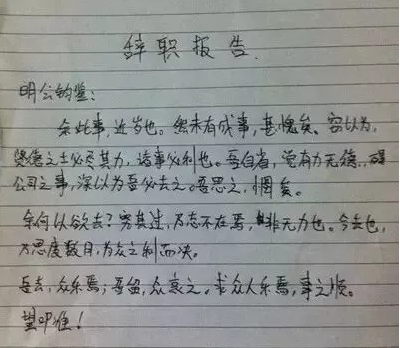 辞职报告
明公钧鉴：
余此事，近岁也。然未有成事，甚愧矣。窃以为，
德之士必尽其力，诸事必利也。吾自省，觉有力无德，碍
公司之事，深以为吾必去之。吾思之，惘矣。
余何以欲去？究其过，乃志不在焉，非无力也。今去也，
乃思度数月，为众之利而决。
吾去，众乐焉；吾留，众哀之。求众人乐焉，事之顺。
望叩准！